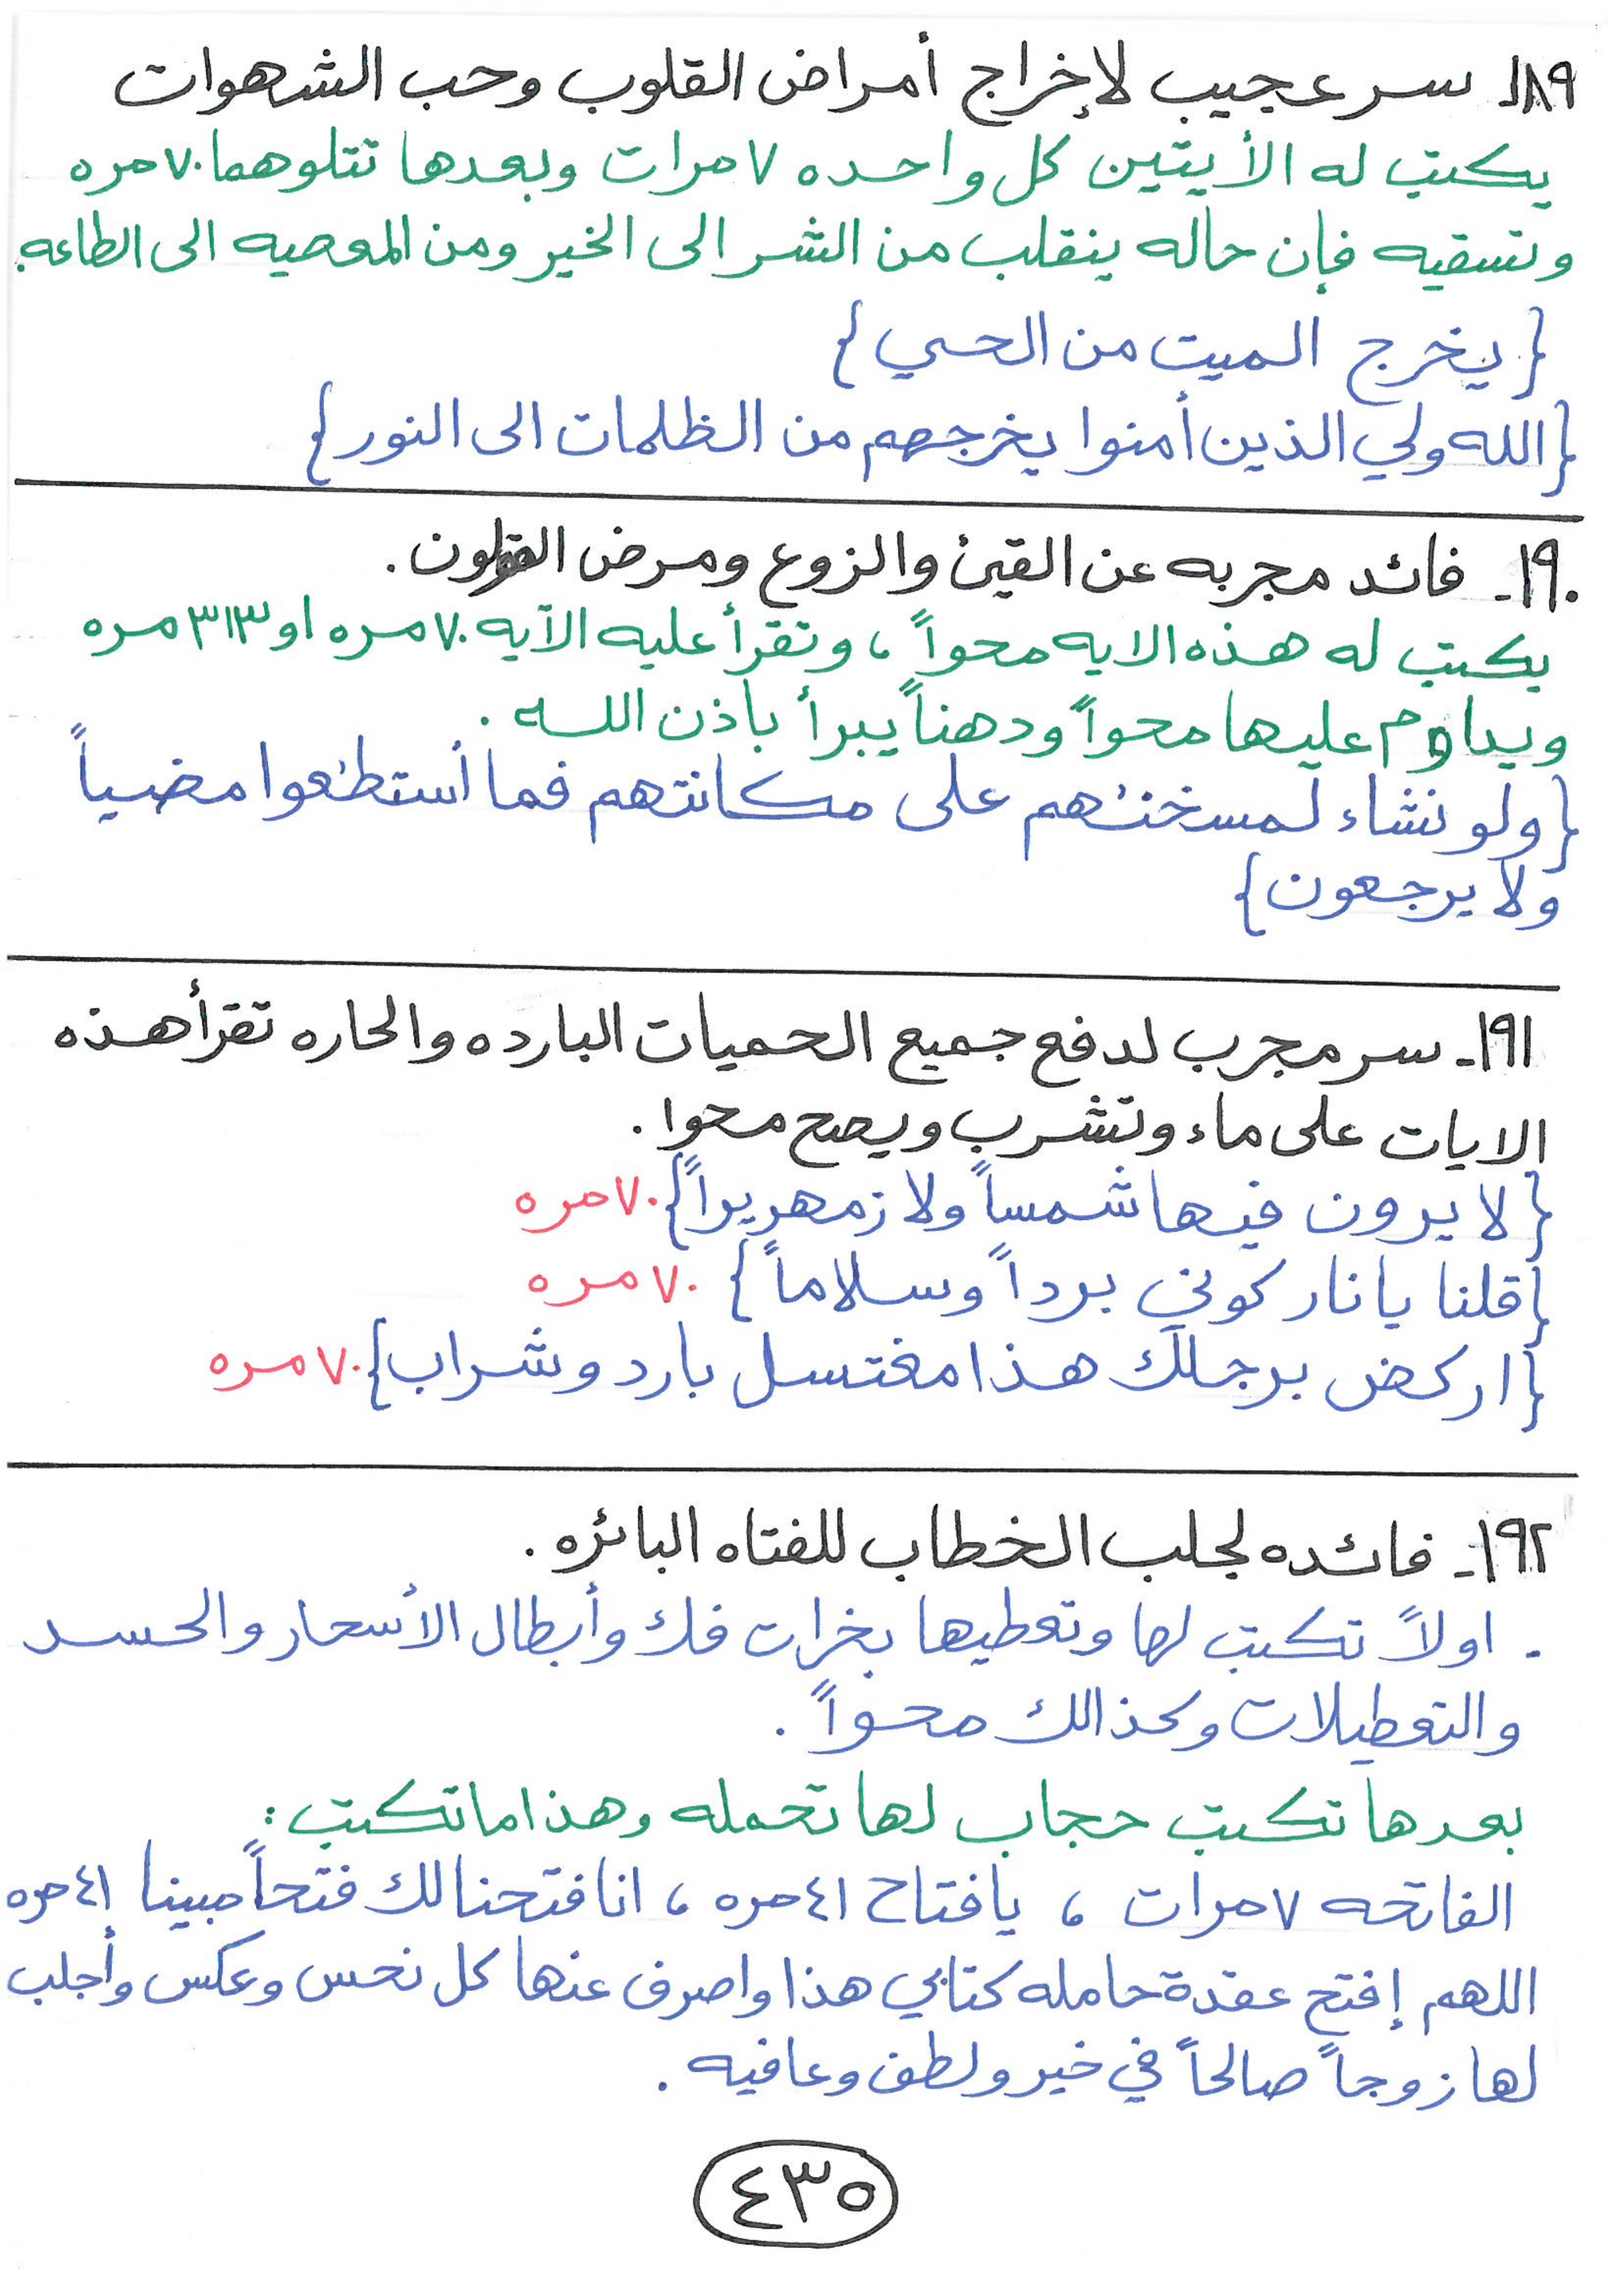 ١٨٩ـ سر عجيب لإخراج أمراض القلوب وحب الشهوات
يكتب له الأيتين كل واحده ٧ مرات وبعدها تتلوهما ٧٠ مره
وتسقيه فإن حاله ينقلب من الشر الى الخير ومن المعصيه الى الطاعه.
{يخرج الميت من الحي}
{الله ولي الذين أمنوا يخرجهم من الظلمات الى النور}
١٩٠ـ فائد مجربه عن القيئ والزوع ومرض القولون.
يكتب له هذه الايه محواً، وتقرأ عليه الآيه ٧٠ مره او ٣١٣ مره
ويداوم عليها محواً ودهناً يبرأ باذن الله.
{ولو نشاء لمسخنٰهم على مكانتهم فما أستطٰعوا مضياً
ولا يرجعون}
١٩١ـ سر مجرب لدفع جميع الحميات البارده والحاره تقرأ هذه
الايات على ماء وتشرب ويصح محوا.
{لا يرون فيها شمساً ولا زمهريراً} ٧٠ مره
{قلنا يا نار كوني برداً وسلاماً} ٧٠ مره
{اركض برجلك هذا مغتسل بارد وشراب} ٧٠ مره
١٩٢ـ فائده لجلب الخطاب للفتاه البائره.
ـ اولاً تكتب لها وتعطيها بخرات فك وأبطال الأسحار والحسد
والتعطيلات وكذالك محواً.
بعدها تكتب حجاب لها تحمله وهذا ما تكتب:
الفاتحه ٧ مرات، يافتاح ٤١ مره، انا فتحنا لك فتحاً مبينا ٤١ مره
اللهم إفتح عقدة حامله كتابي هذا واصرف عنها كل نحس وعكس وأجلب
لها زوجاً صالحاً في خير ولطف وعافيه.
٤٣٥